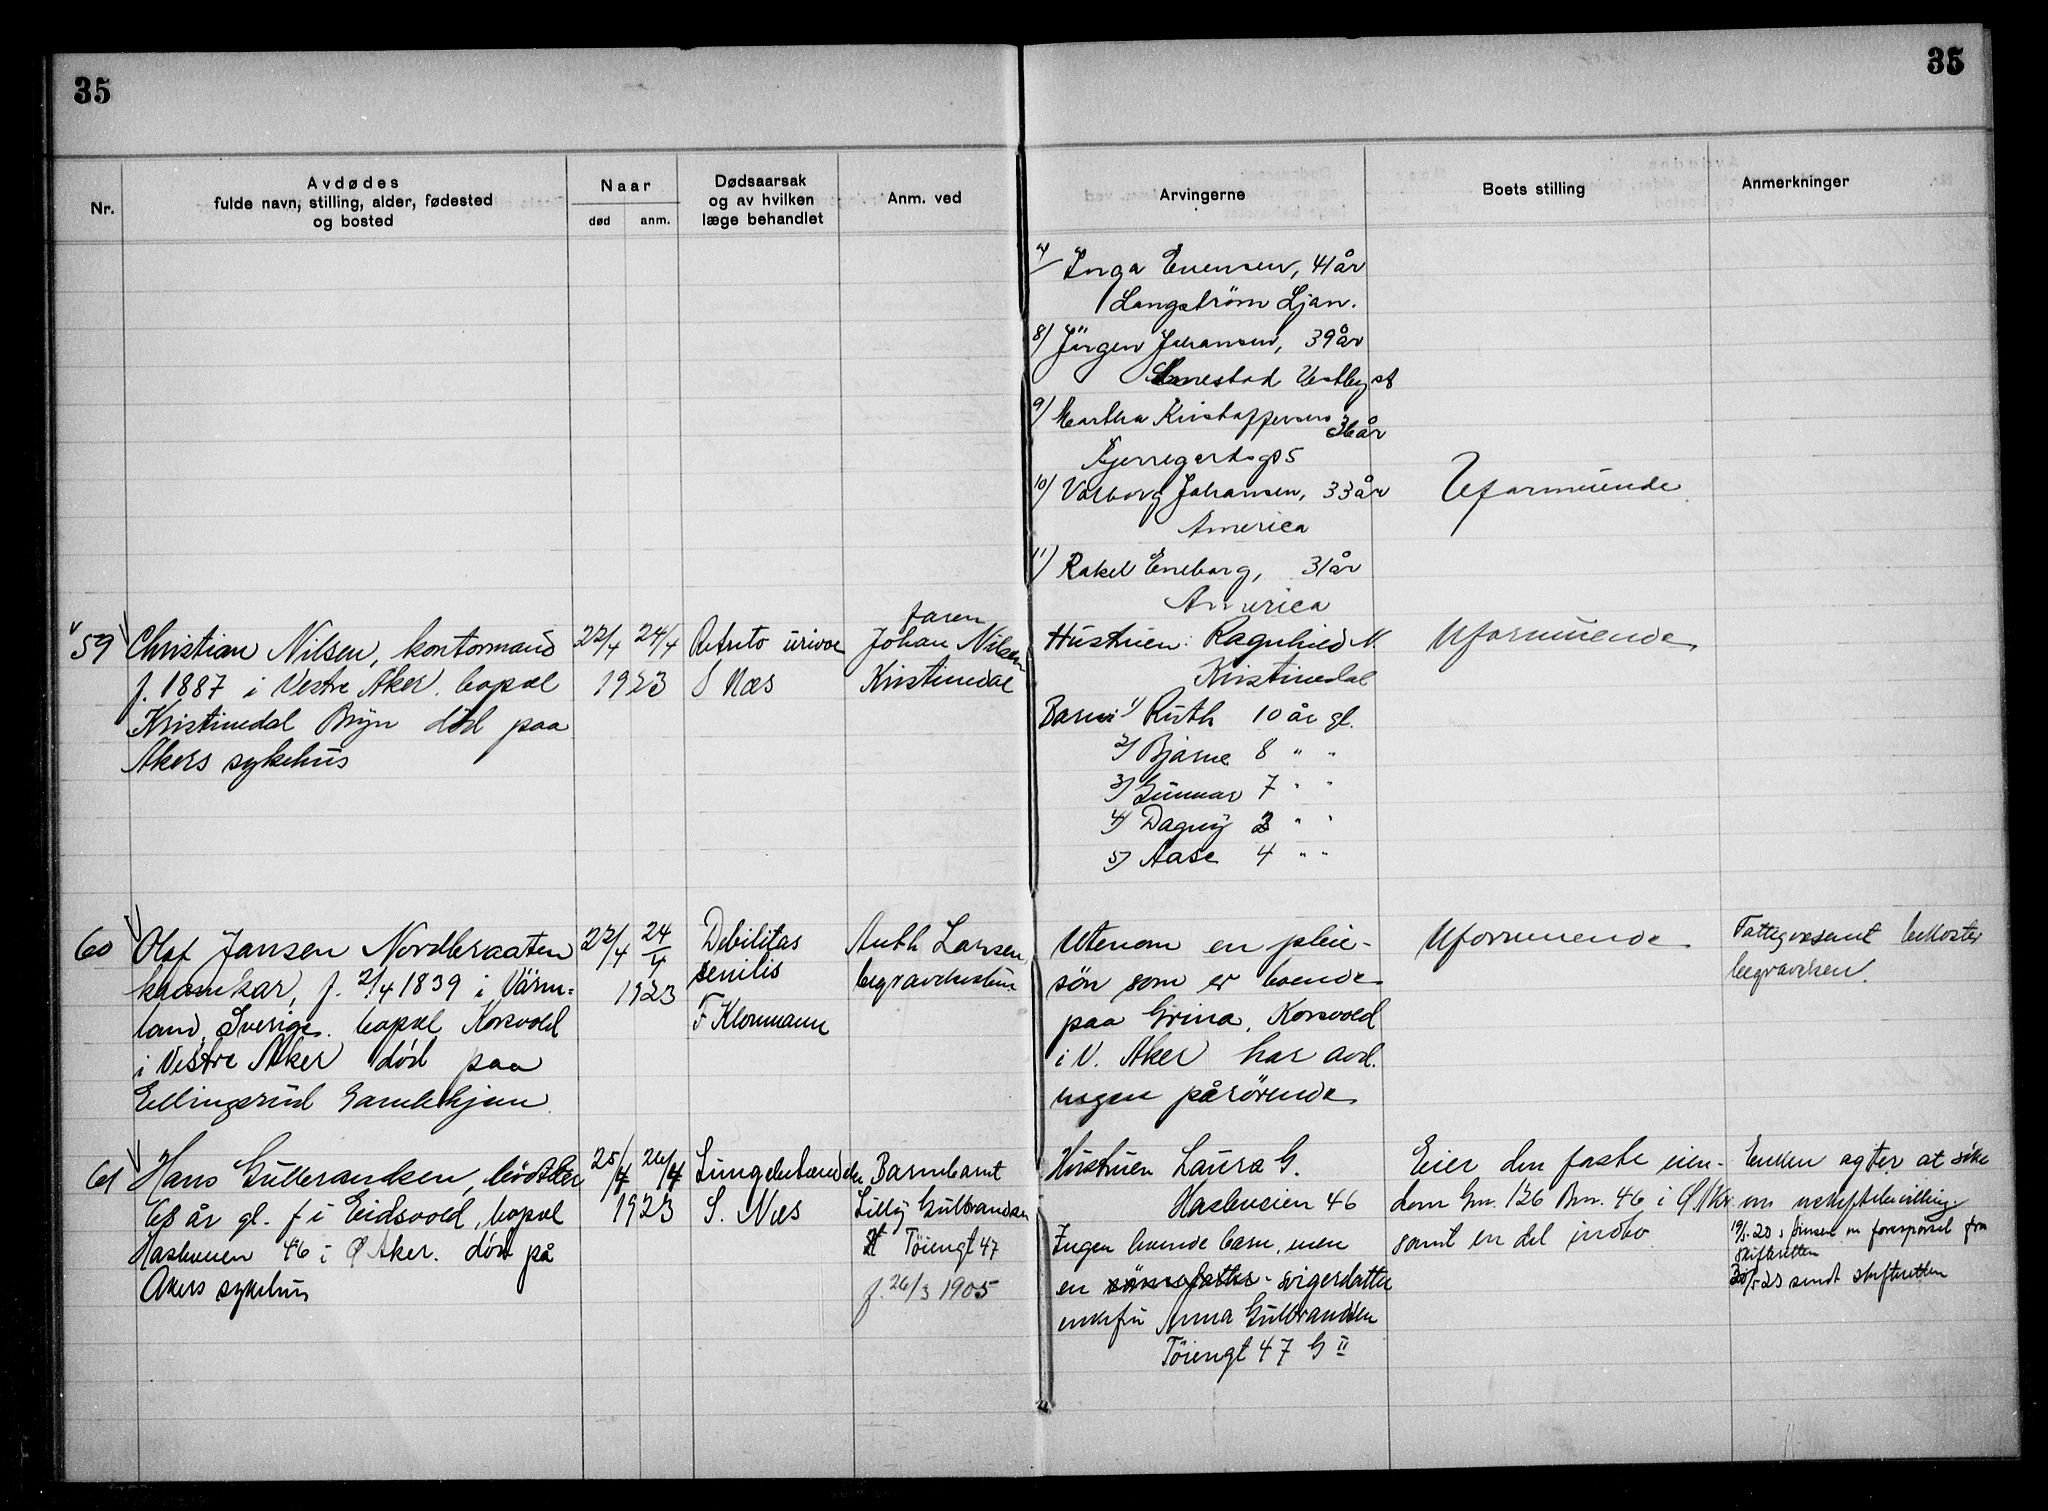 35
35
Nr.
Avdødes
fulde navn, stilling, alder, fødested
og bosted
Naar
død
anm.
Dødsaarsak
og av hvilken
læge behandlet
Anm. ved
Arvingerne
Boets stilling
Anmerkninger
7/ Inga Evensen, 41 år
Langström Ljan.
8/ Jörgen Johansen, 39 år
Vestby st
9/ Martha Kristoffersen
36 år
10/ Valborg Johansen, 33 år
Uformuende
America
11/ Rakel Eneberg, 31 år
America
59
Christian Nilsen, kontormand
f. 1887 i Vestre Aker. bopæl
Kristinedal Bryn död paa
Akers sykehus
22/4 24/4
1923
S Næs
faren
Johan Nilsen
Kristinedal
Hustruen: Ragnhild N.
Kristinedal
Barn: 1/ Ruth 10 år gl.
2/ Bjarne 8 " "
3/ Gunnar 7 " "
4/ Dagny 3 " "
5/ Aase 4 " "
Uformuende
60
Olaf Jansen Nordbraaten
f. 2/4 1839 i Värm-
land, Sverige. bopæl Korsvold
i Vestre Aker död paa
Ellingsrud Gamlehjem.
22/4 24/4
1923
Debilitas
senilis
F Klonmann
Anth Larsen
Utenom en pleie-
sön som er boende
paa Grina, Korsvold
i V. Aker har avd.
ingen pårörende
Uformuende
Fattigvesenet bekoster
begravelsen.
61
Hans Gulbrandsen,
68 år gl. f i Eidsvold, bopæl
Hasleveien 46 i Ø Aker. död på
Akers sykehus
25/4 26/4
1923
Lungebetændelse
S. Næs
Barnebarnet
Lilly Gulbrandsen
Töiengt 47
f. 26/3 1905
Hustruen Laura G.
Hasleveien 46
Ingen levende barn, men
en svigerdatter
enkefru Anna Gulbrandsen
Töiengt 47 G II
Eier den faste eien-
dom Gn. 126 Bn. 46 i Ø Aker
samt en del indbo.
Enken agter at söke
om uskiftebevilling.
19/5-23 forespörsel fra
skifteretten
23 sendt skifteretten